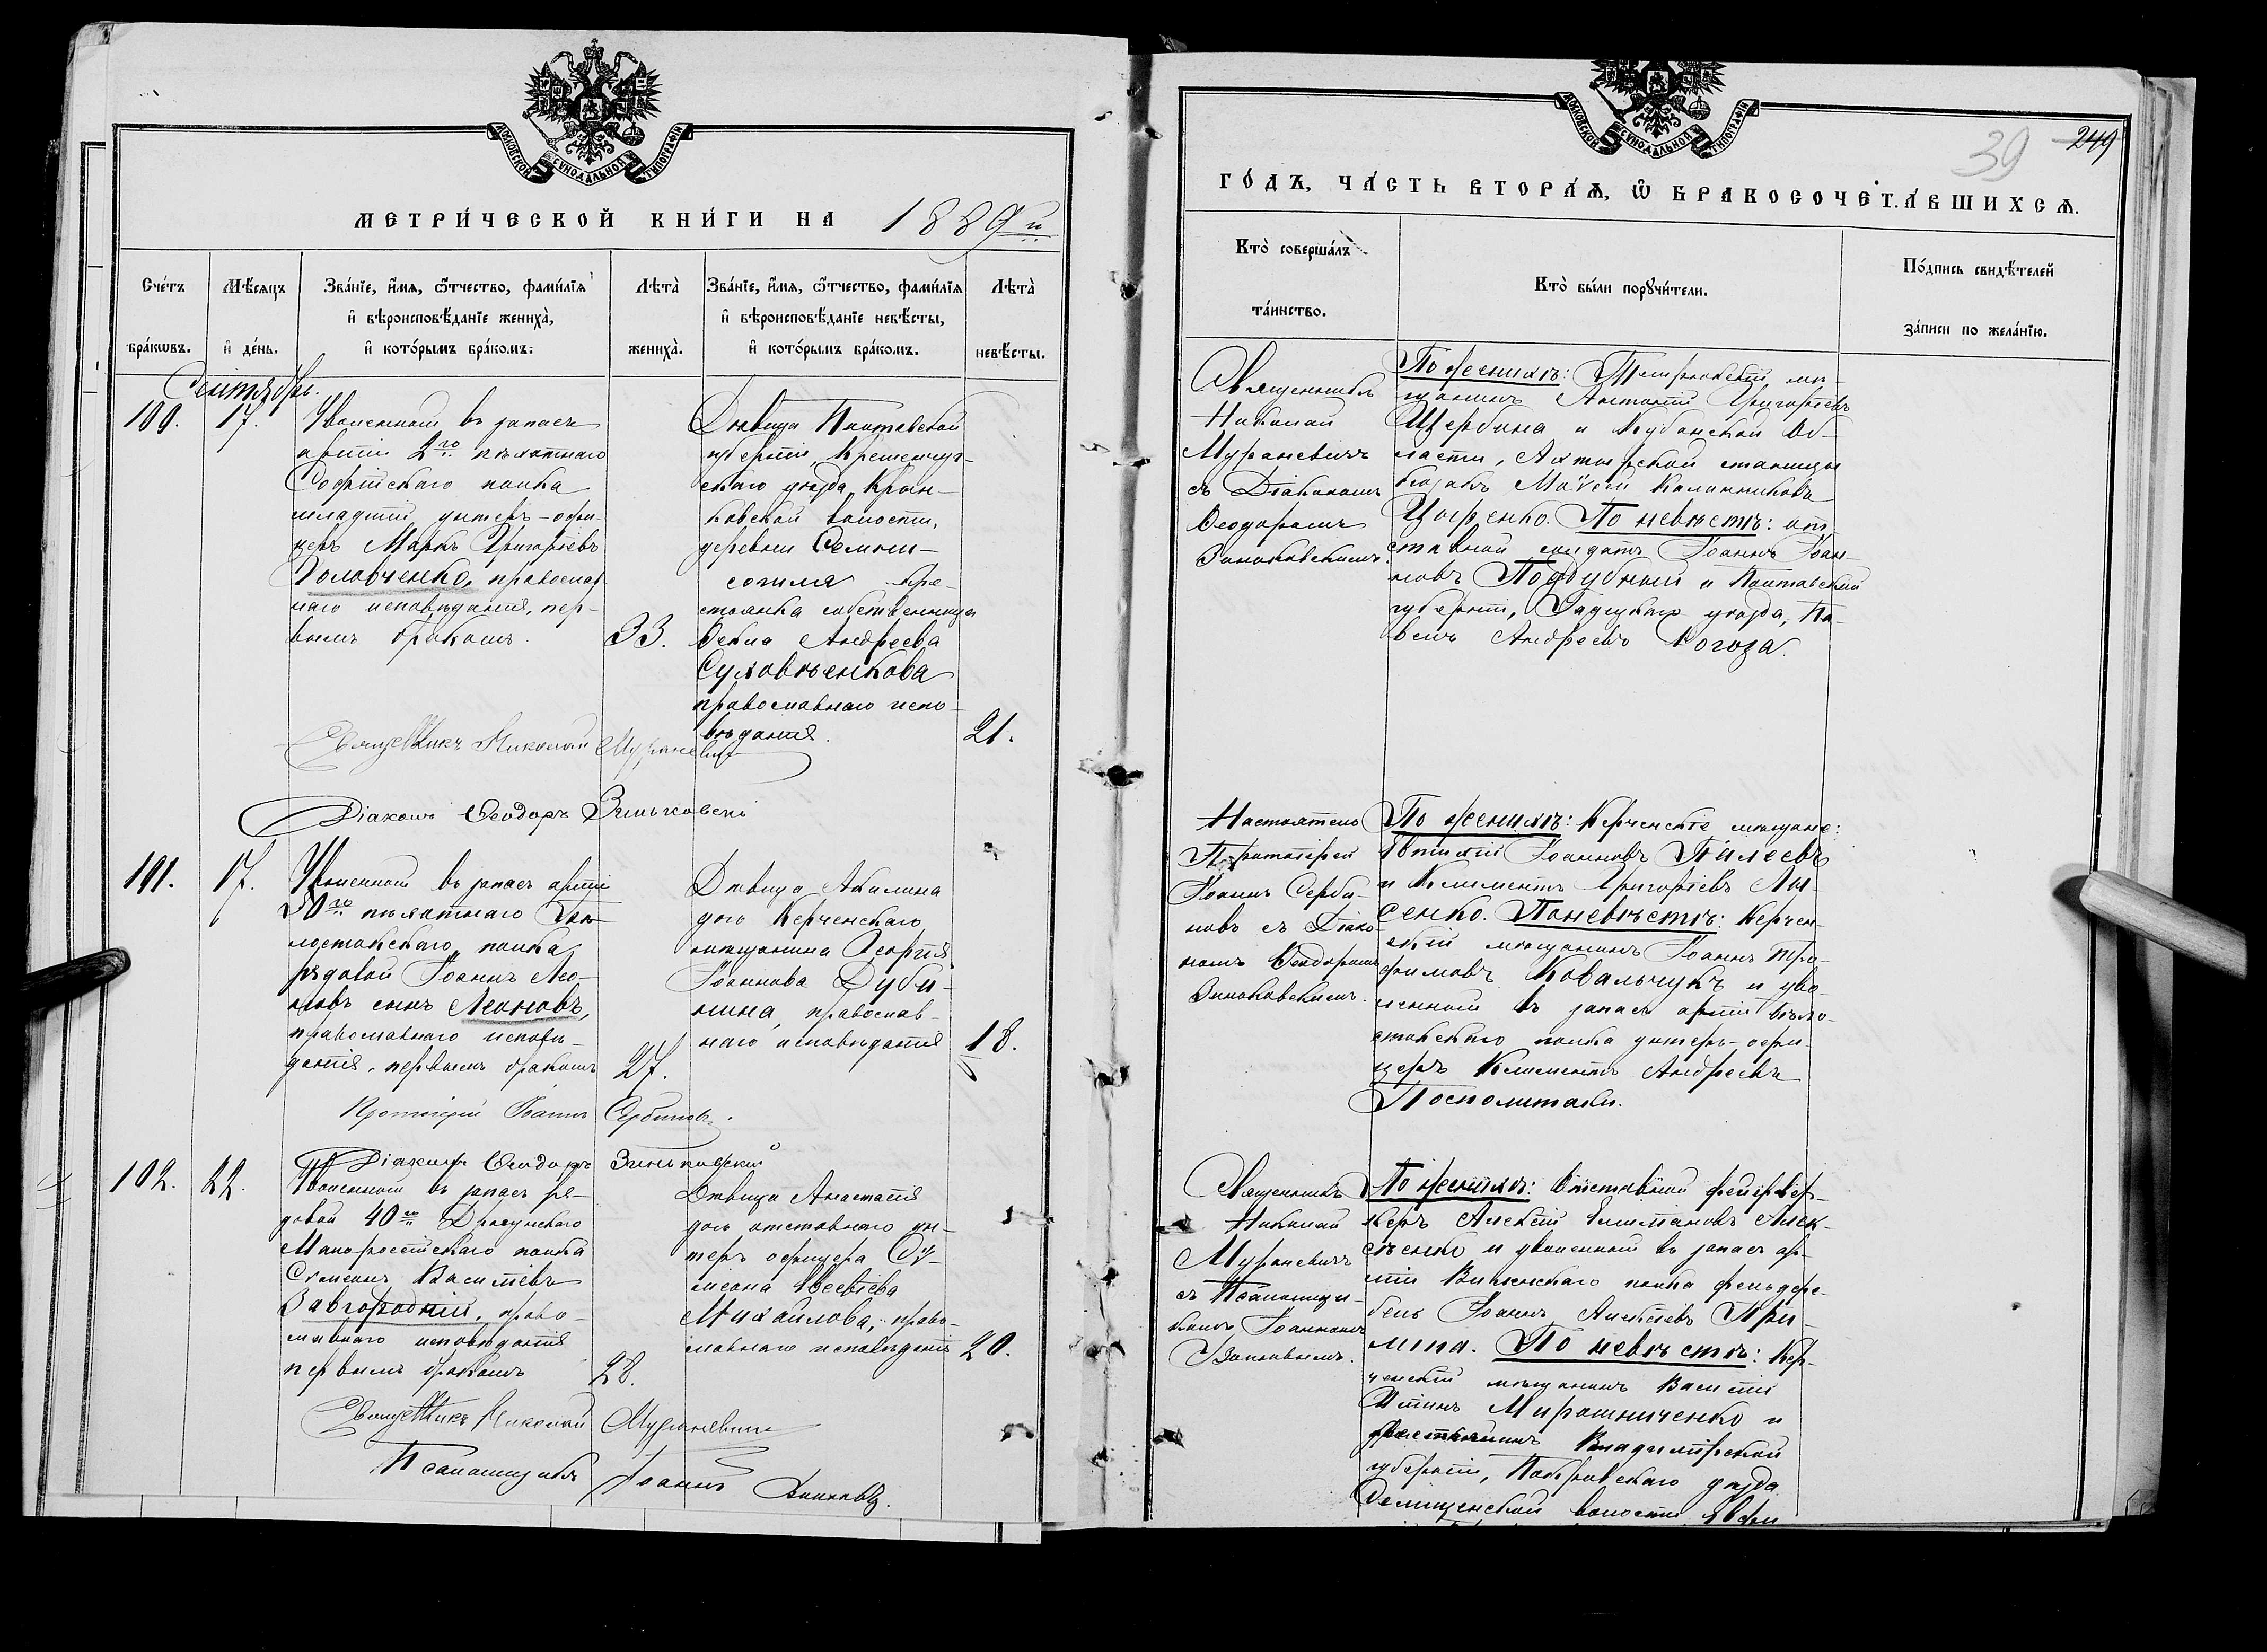 МОСКОВСКОЙ СѴНОДАЛЬНОЙ ТИПОГРАФІИ
МЕТРИ́ЧЕСКОЙ КНИ́ГИ НА 1889й
Сче́тъ бра́кѡвъ.
Мѣ́сяцъ и҆ де́нь.
Зва́нїе, и҆́мя, ѻ҆́тчество, фами́лїя
и҆ вѣроисповѣ́данїе жениха̀,
и҆ кото́рымъ бра́комъ.
Лѣта̀ жениха̀.
Зва́нїе, и҆́мя, ѻ҆́тчество, фами́лїя
и҆ вѣроисповѣ́данїе невѣ́сты,
и҆ кото́рымъ бра́комъ.
Лѣта̀ невѣ́сты.
Сентябрь.
100.
17.
Уволенный въ запасъ
арміи 2го пѣхотнаго
Софійскаго полка
младшій унтеръ-офи-
церъ Маркъ Григоріевъ
Головченко, православ
наго исповѣданія, пер-
вымъ бракомъ.
33.
Дѣвица Полтавской
губерніи, Кременчуг-
скаго уѣзда, Крюк-
ковской волости,
деревни
кре-
стьянка собственница
Ѳекла Андреева
Суховѣенкова
православнаго испо-
вѣданія.
21.
Священникъ Николай Мураневичъ
Діаконъ Ѳеодоръ Зиньковскій
101.
17.
Уволенный въ запасъ арміи
50го пѣхотнаго Бѣ-
лостокскаго полка
рядовой Іоаннъ Лео-
новъ сынъ Леоновъ,
православнаго исповѣ-
данія, первымъ бракомъ
27.
Дѣвица Акилина
дочь Керченскаго
мѣщанина Георгія
Іоаннова Дуби-
нина, православ-
наго исповѣданія
18.
Протоіерей Іоаннъ Сербиновъ.
Діаконъ Ѳеодоръ Зиньковскій
102.
22.
Уволенный въ запасъ ря-
довой 40го Драгунскаго
Малороссійскаго полка
Стефанъ Василіевъ
Завгородній, право-
славнаго исповѣданія
первымъ бракомъ
28.
Дѣвица Анастасія
дочь отставнаго ун-
теръ офицера Си-
меона Евсевіева
Михайлова, право-
славнаго исповѣданія
20.
Священникъ Николай Мураневичъ
Псаломщикъ Іоаннъ
39 249
МОСКОВСКОЙ СѴНОДАЛЬНОЙ ТИПОГРАФІИ
ГО́ДЪ, ЧА́СТЬ ВТОРА́Я, Ѽ БРАКОСОЧЕТА́ВШИХСЯ.
Кто̀ соверша́лъ та́инство.
Кто̀ бы́ли порꙋчи́тели.
По́дпись свидѣ́телей за́писи по жела́нїю.
Священникъ
Николай
Мураневичъ
съ Діакономъ
Ѳеодоромъ
Зиньковскимъ.
По женихѣ: Темрюкскій мѣ-
щанинъ Антоній Григоріевъ
Щербина и Кубанской Об-
ласти, Ахтырской станицы
козакъ Моѵсей Калинниковъ
По невѣстѣ: от
ставной солдатъ Іоаннъ Іоан-
новъ Поддубный и Полтавской
губерніи, Гадяцкаго уѣзда, Па-
велъ Андреевъ Рогоза.
Настоятель
Протоіерей
Іоаннъ Серби-
новъ съ Діако-
номъ Ѳеодоромъ
Зиньковскимъ.
По женихѣ: Керченскіе мѣщане:
Евтихій Іоанновъ Пилеевъ
и Климентъ Григоріевъ Лы-
сенко. По невѣстѣ: Керчен-
скій мѣщанинъ Іоаннъ Тро-
фимовъ Ковальчукъ и уво-
ленный въ запасъ арміи Бѣло-
стокскаго полка унтеръ-офи-
церъ Климентъ Андреевъ
Посполитакъ.
Священникъ
Николай
Мураневичъ
съ Псаломщи-
комъ Іоанномъ
По женихѣ: Отставной фейервер-
керъ Алексій Алек-
сѣенко и уволенный въ запасъ ар-
міи Виленскаго полка фельдфе-
бель Іоаннъ Алексіевъ При-
По невѣстѣ: Кер-
ченскій мѣщанинъ Василій
Мирошниченко и
крестьянинъ Владимірской
губерніи, Покровскаго уѣзда
волости